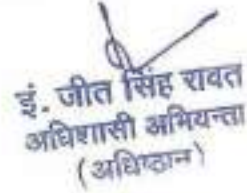 इं. जीत सिंह रावत
अधिशासी अभियन्ता
(अधिष्ठान)